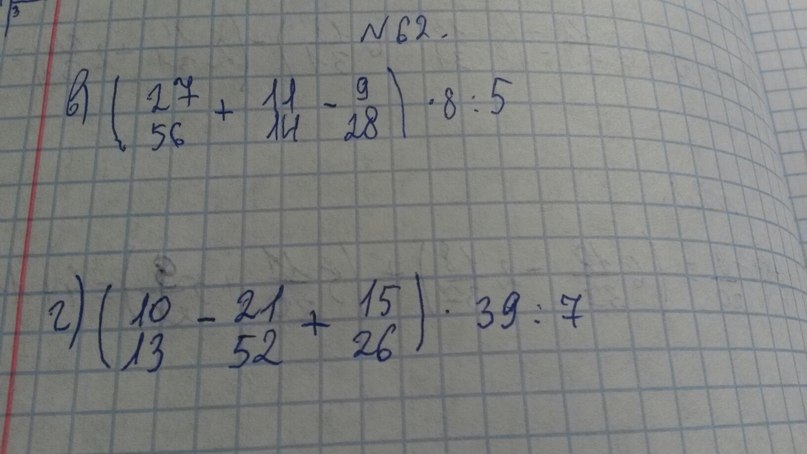 N 62.
в) ( 27/56 + 11/14 - 9/28 ) · 8 : 5
г) ( 10/13 - 21/52 + 15/26 ) · 39 : 7